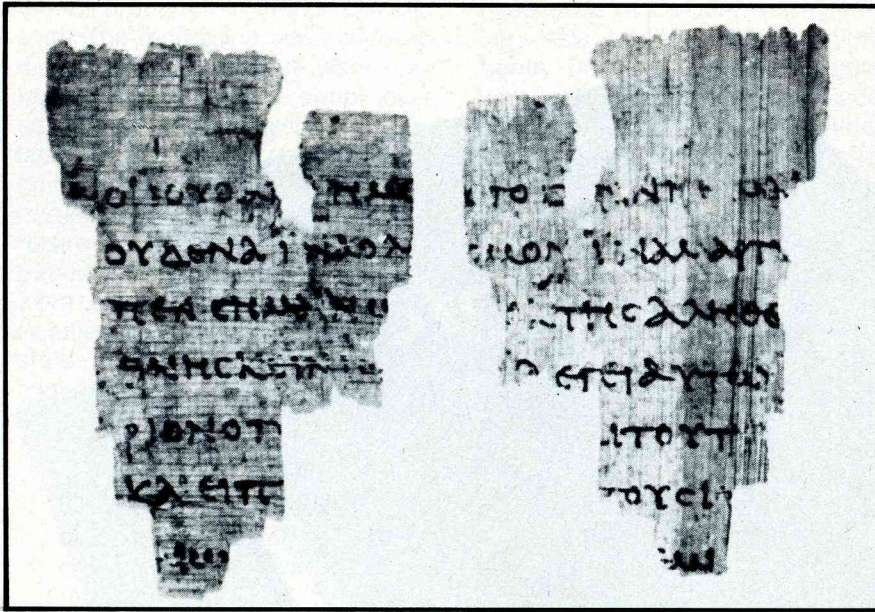 ΟΙ ΙΟΥΔΑΙ ΗΜΕ
ΟΥΔΕΝΑ ΙΝΑ Ο ΛΟ
ΠΕΝ CΗΜΑΙΝΩ
ΘΝΗCΚΕΙΝ
ΡΙΟΝ Ο Π
ΚΑΙ ΕΙΠ
ΤΟ
CΜΟΝ ΙΝΑ ΜΑΡΤΥ
ΤΗC ΑΛΗΘΕ
ΛΕΓΕΙ ΑΥΤΩ
ΑΙ ΤΟΥΤ
ΤΟΥC Ι